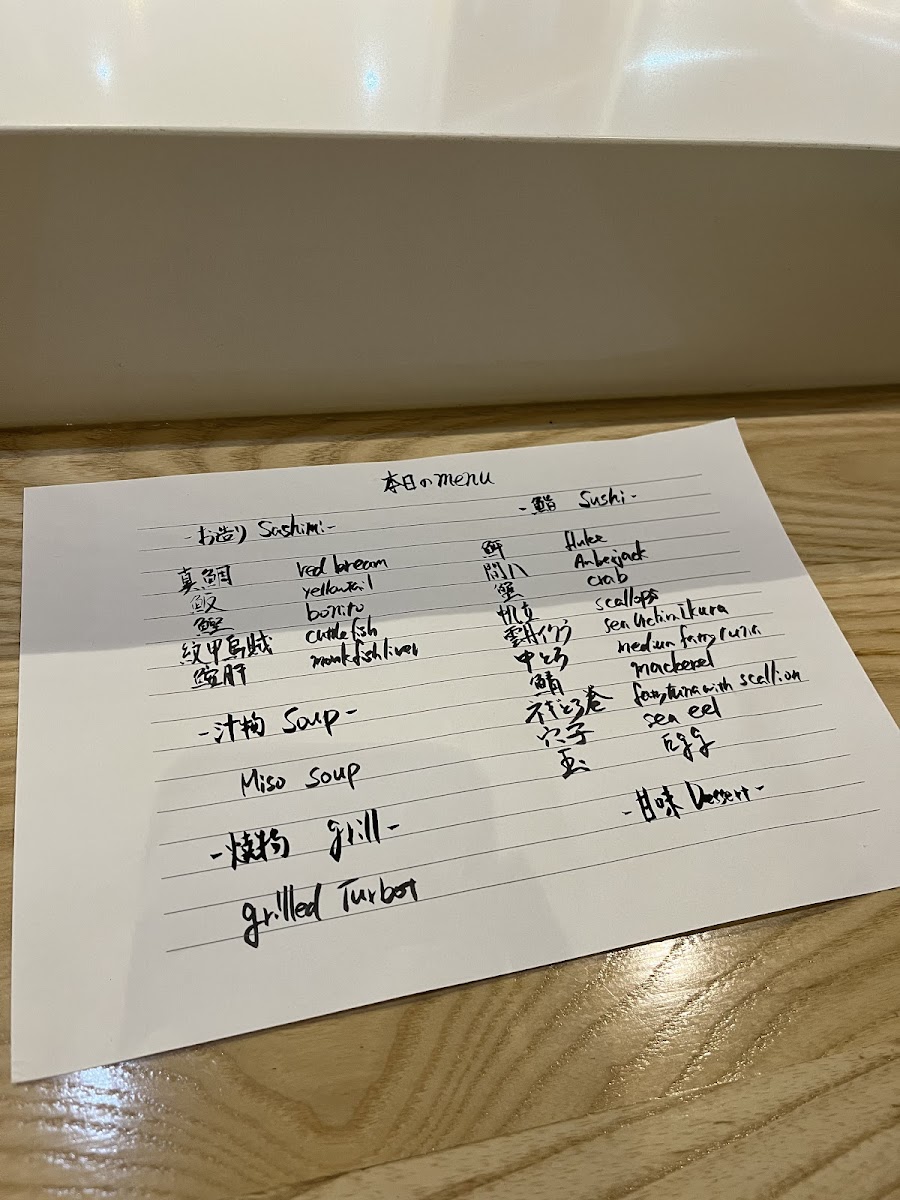 本日のmenu
-お造り Sashimi-
真鯛 red bream
鰤 yellowtail
鰹 bonito
紋甲烏賊 cuttlefish
鮟肝 monkfish liver
-汁物 Soup-
Miso Soup
-焼物 grill-
grilled Turbot
-鮨 Sushi-
鮃 fluke
間八 Amberjack
蟹 crab
帆立 scallops
雲丹イクラ sea urchin ikura
中とろ medium fatty tuna
鯖 mackerel
ネギとろ巻 fatty tuna with scallion
穴子 sea eel
玉 Egg
-甘味 Dessert-